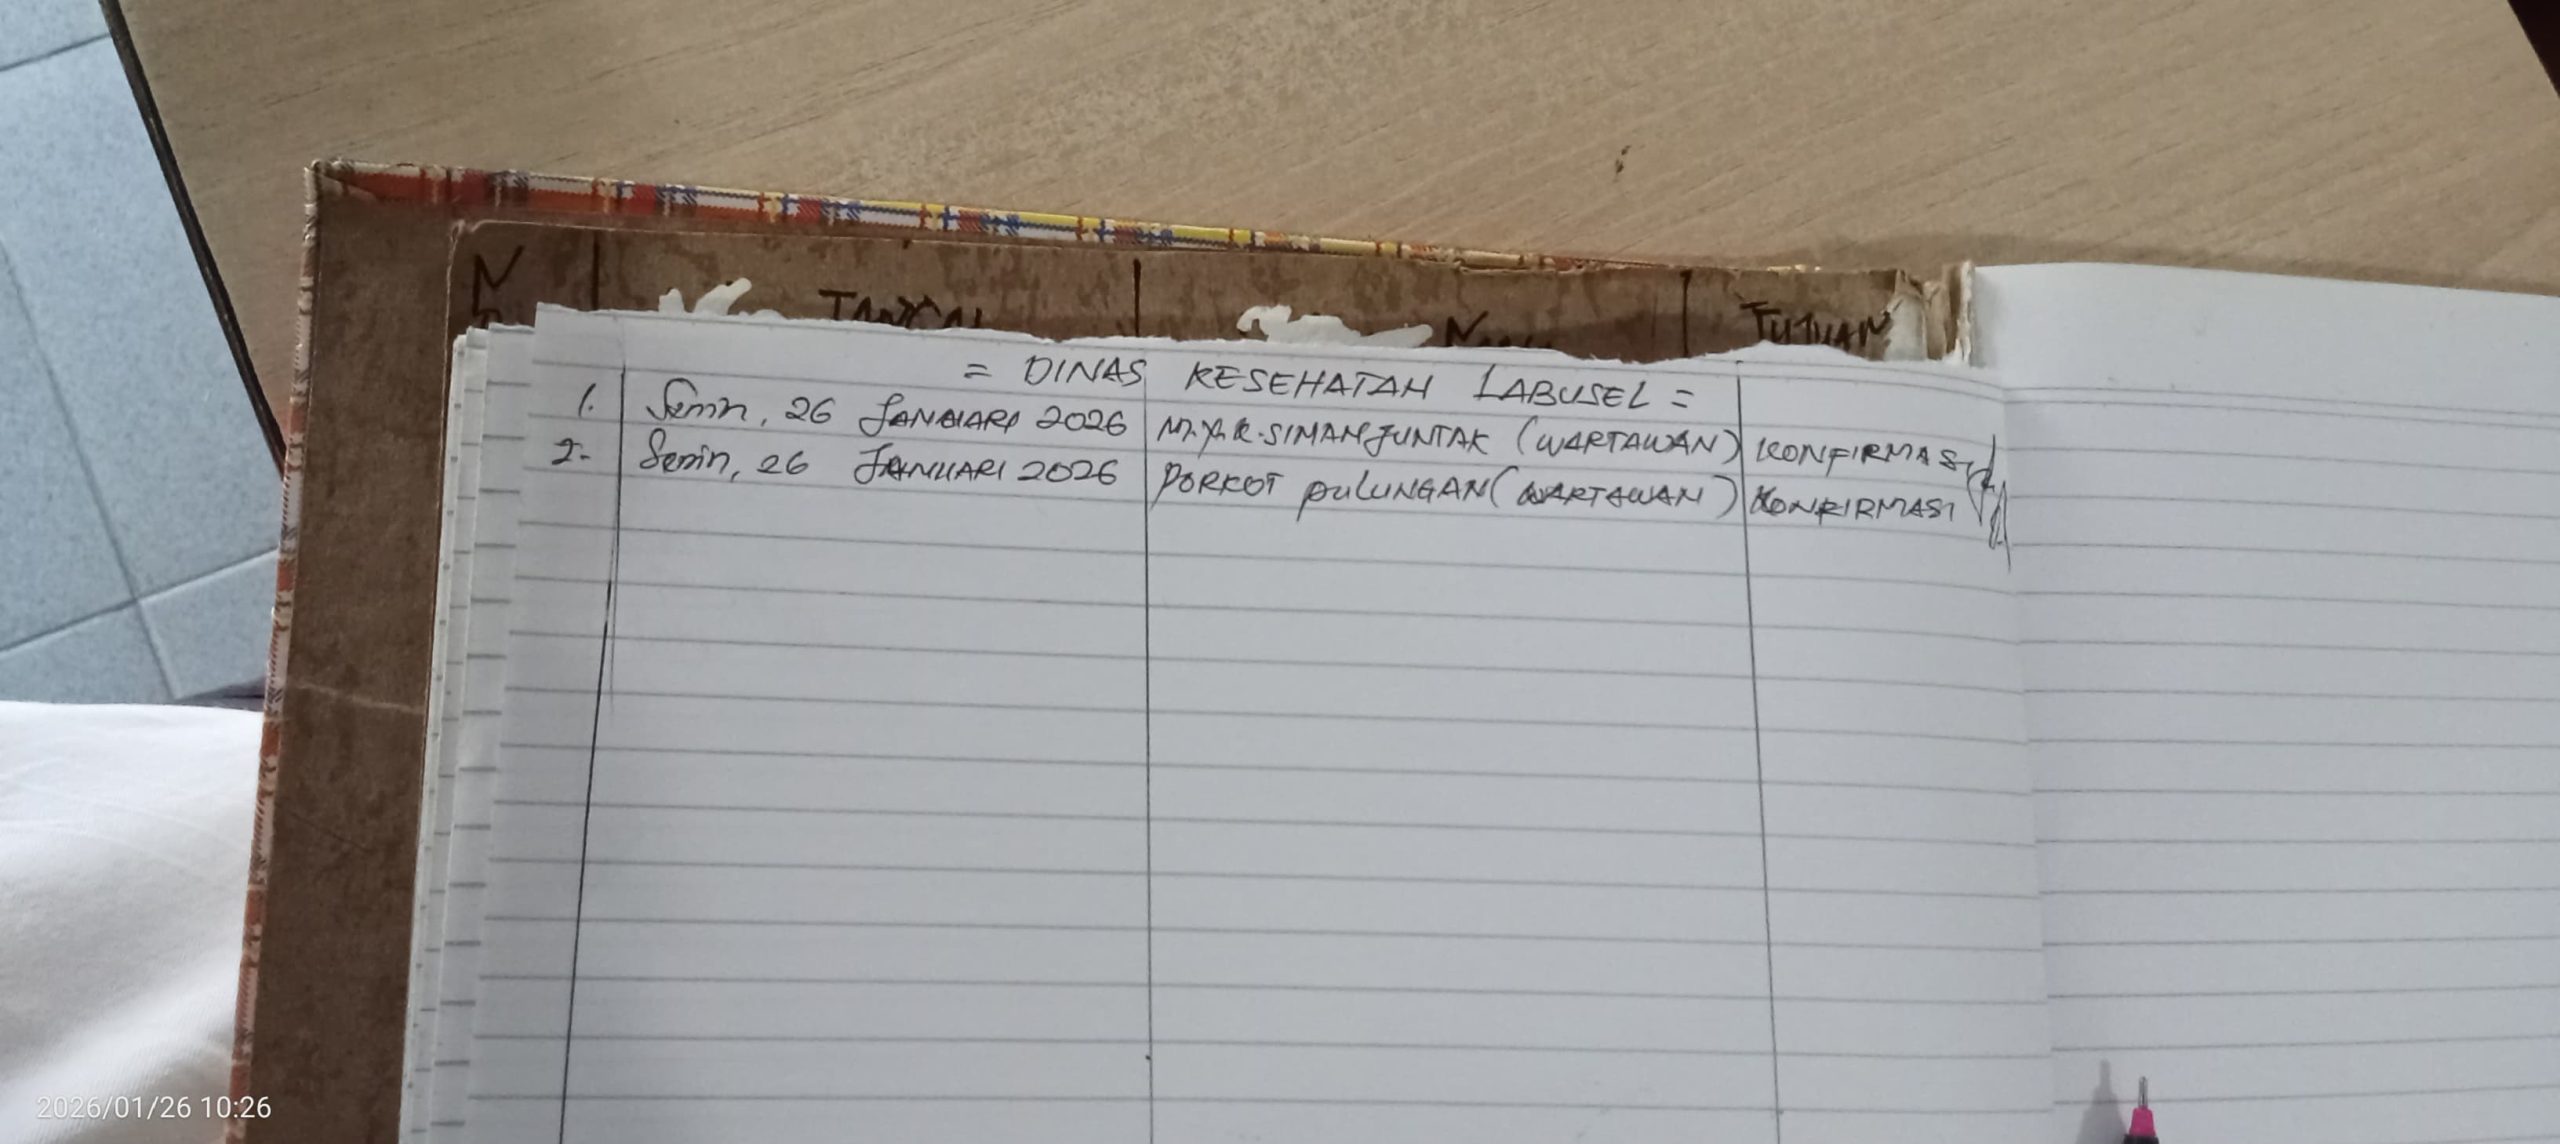 NO TANGGAL NAMA TUJUAN
= DINAS KESEHATAN LABUSEL =
1. Senin, 26 JANUARI 2026 M.Y.R.SIMANJUNTAK (WARTAWAN) KONFIRMASI
2- Senin, 26 JANUARI 2026 PORKOT PULUNGAN (WARTAWAN) KONFIRMASI
2026/01/26 10:26